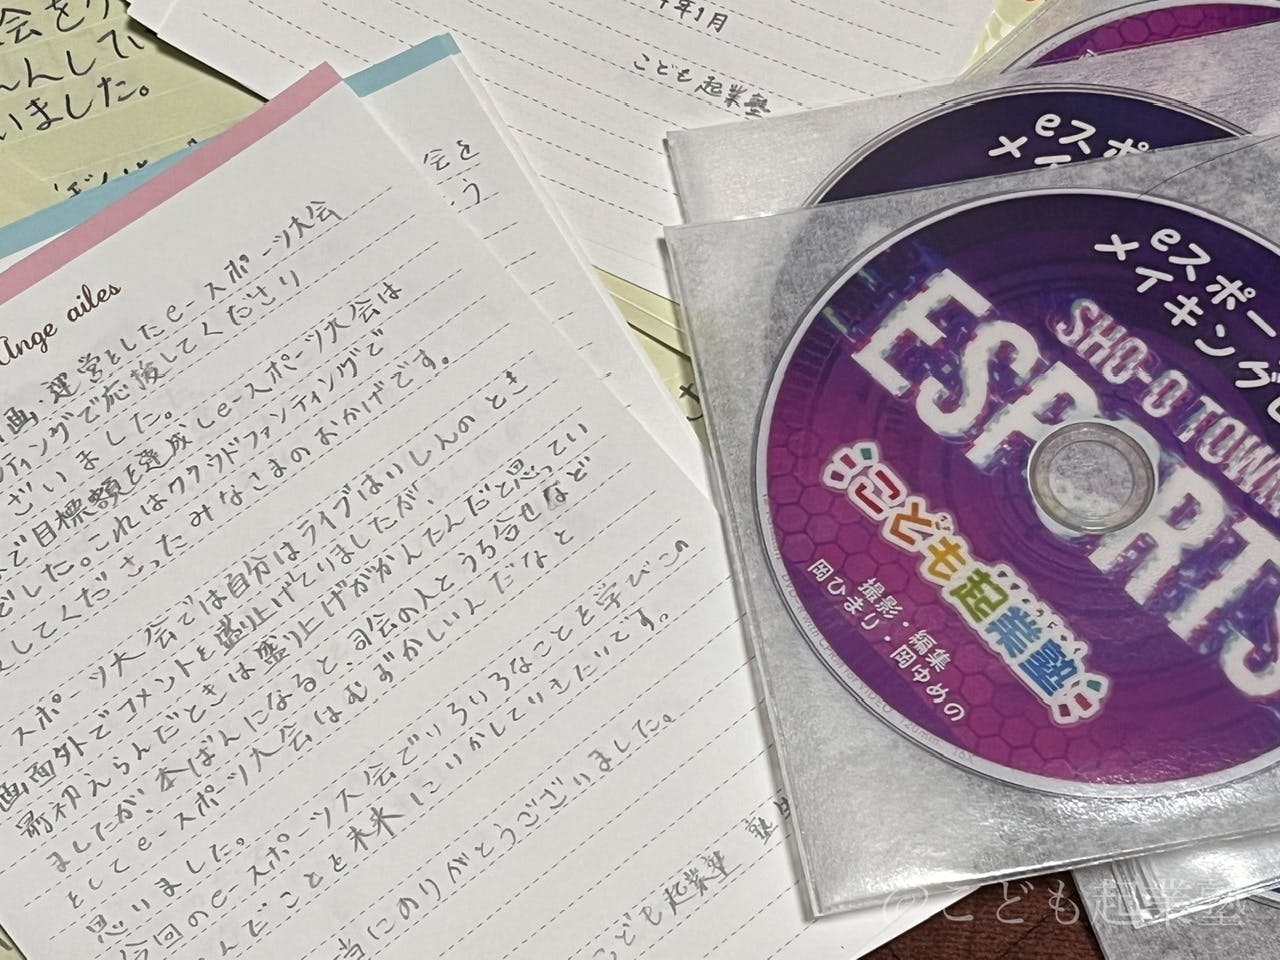 会を
んして
いました。
年1月
こども起業塾
会を
う
Ange ailes
画・運営としたe-スポーツ大会
ティングで応援してくださり
ございました。
で目標額を達成しe-スポーツ大会は
でした。これはクラウドファンティングで
してくださったみなさまのおかげです。
スポーツ大会では自分はライブはいしんのとき
画面外でコメントを盛り上げてりましたが、
前初えらんだときは盛り上げがかんたんだと思ってい
ましたが、本ばんになると、司会の人とうち合せなど
をしてe-スポーツ大会はむずかしいんだなと
思いました。
今回のe-スポーツ大会でいろいろなことを学びこの
んでことを未来にいかしていきたいです。
当にありがとうございました。
こども起業塾 塾
eスポ
メイ
eスポー
メイキング
SHO-O TOWN
ESPORTS
こども起業塾
撮影・編集
岡ひまり・岡ゆめの
@こども起業塾